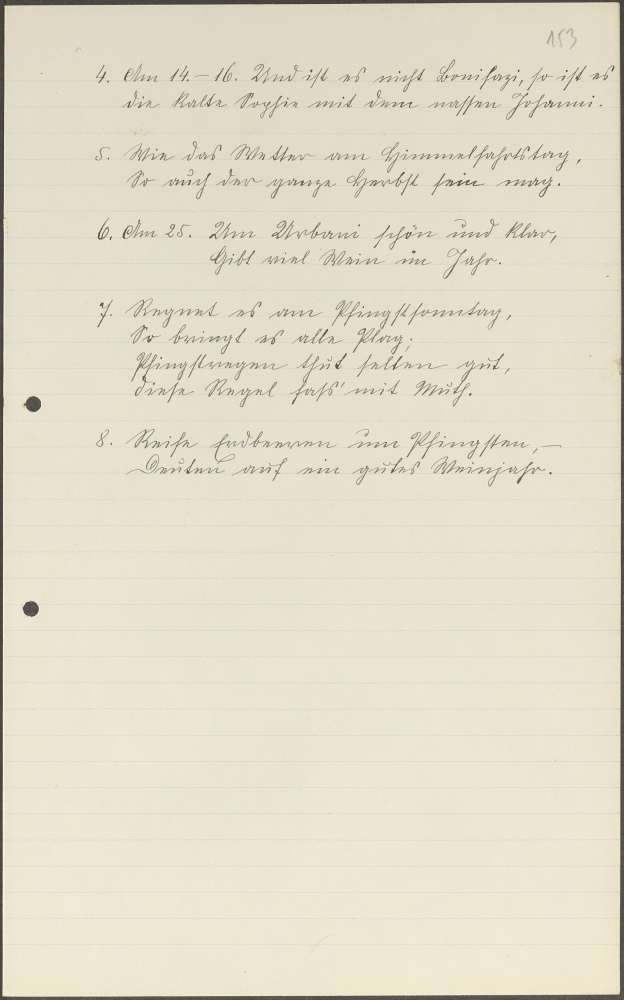 153
4. Am 14.-16. Und ist es nicht Bonifazi, so ist es
die kalte Sophie mit dem nassen Johanni.
5. Wie das Wetter am Himmelfahrtstag,
So auch der ganze Herbst sein mag.
6. Am 25. Um Urbani schön und klar,
Gibt viel Wein im Jahr.
7. Regnet es am Pfingstsonntag,
So bringt es alle Plag;
Pfingstregen thut selten gut,
diese Regel fass' mit Muth.
8. Reife Erdbeeren um Pfingsten,—
Deuten auf ein gutes Weinjahr.